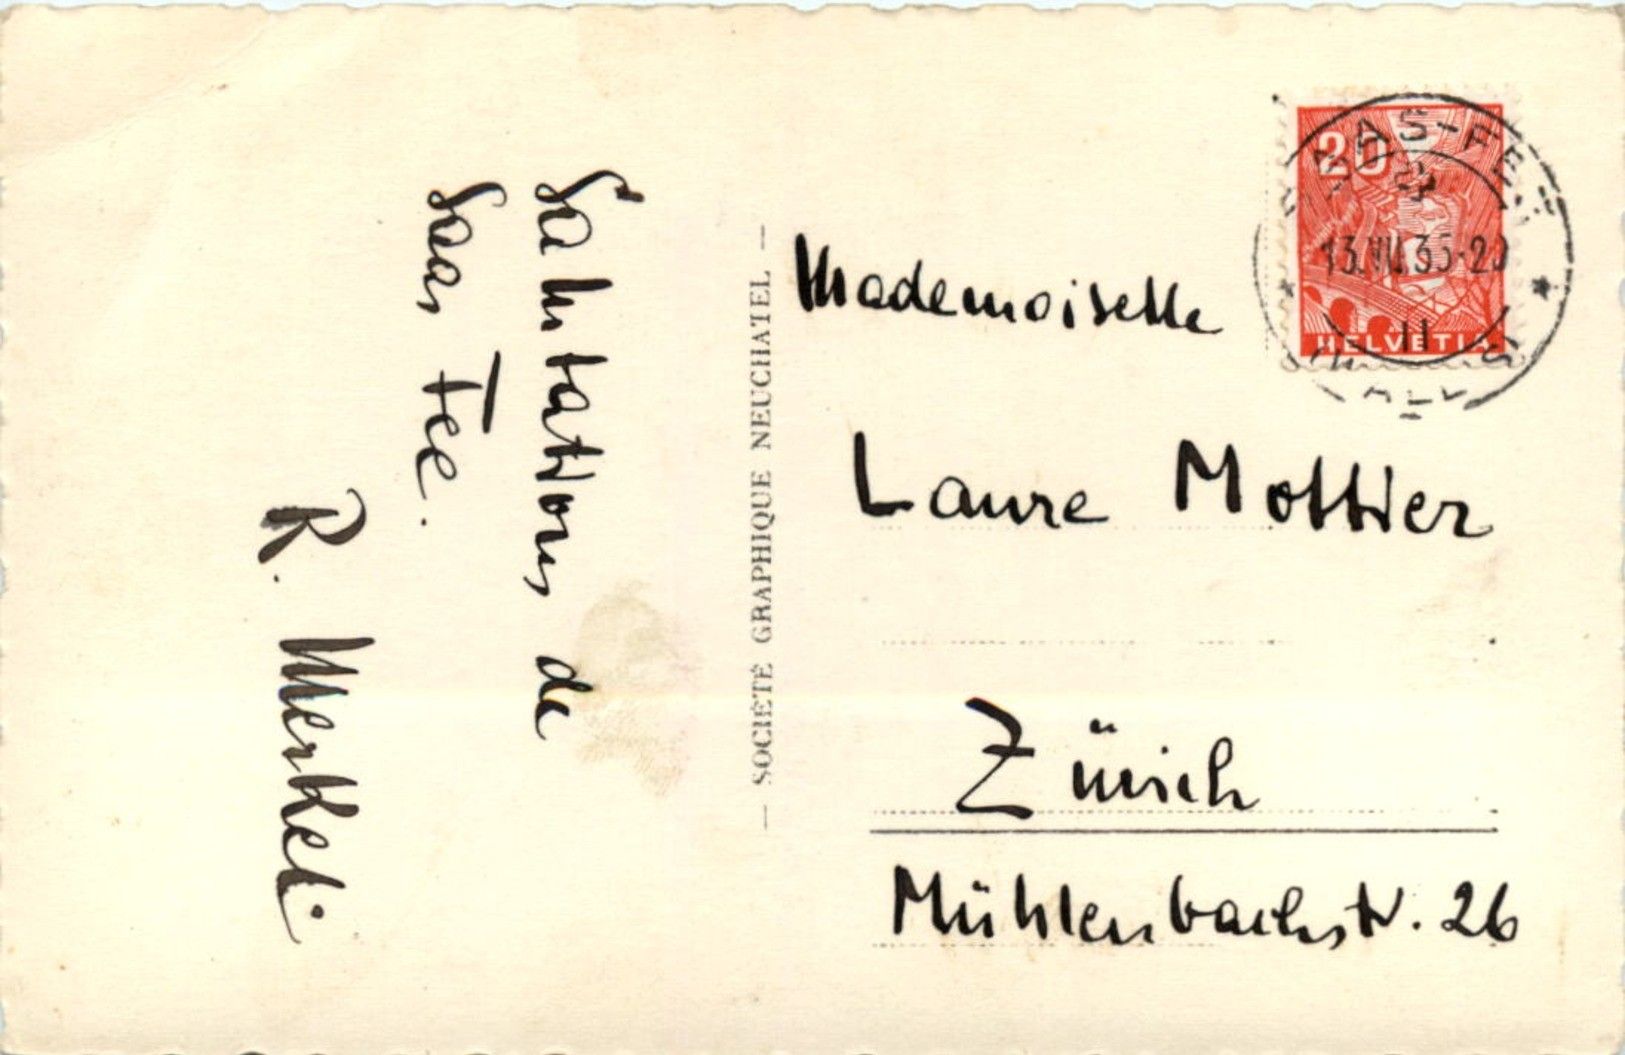 Salutations de
Saas Fee.
R. Merkel
— SOCIÉTÉ GRAPHIQUE NEUCHATEL —
Mademoiselle
Laure Mottier
Zürich
Mühlenbachstr. 26
20
HELVETIA
SAAS-FEE
13.VII.35-20